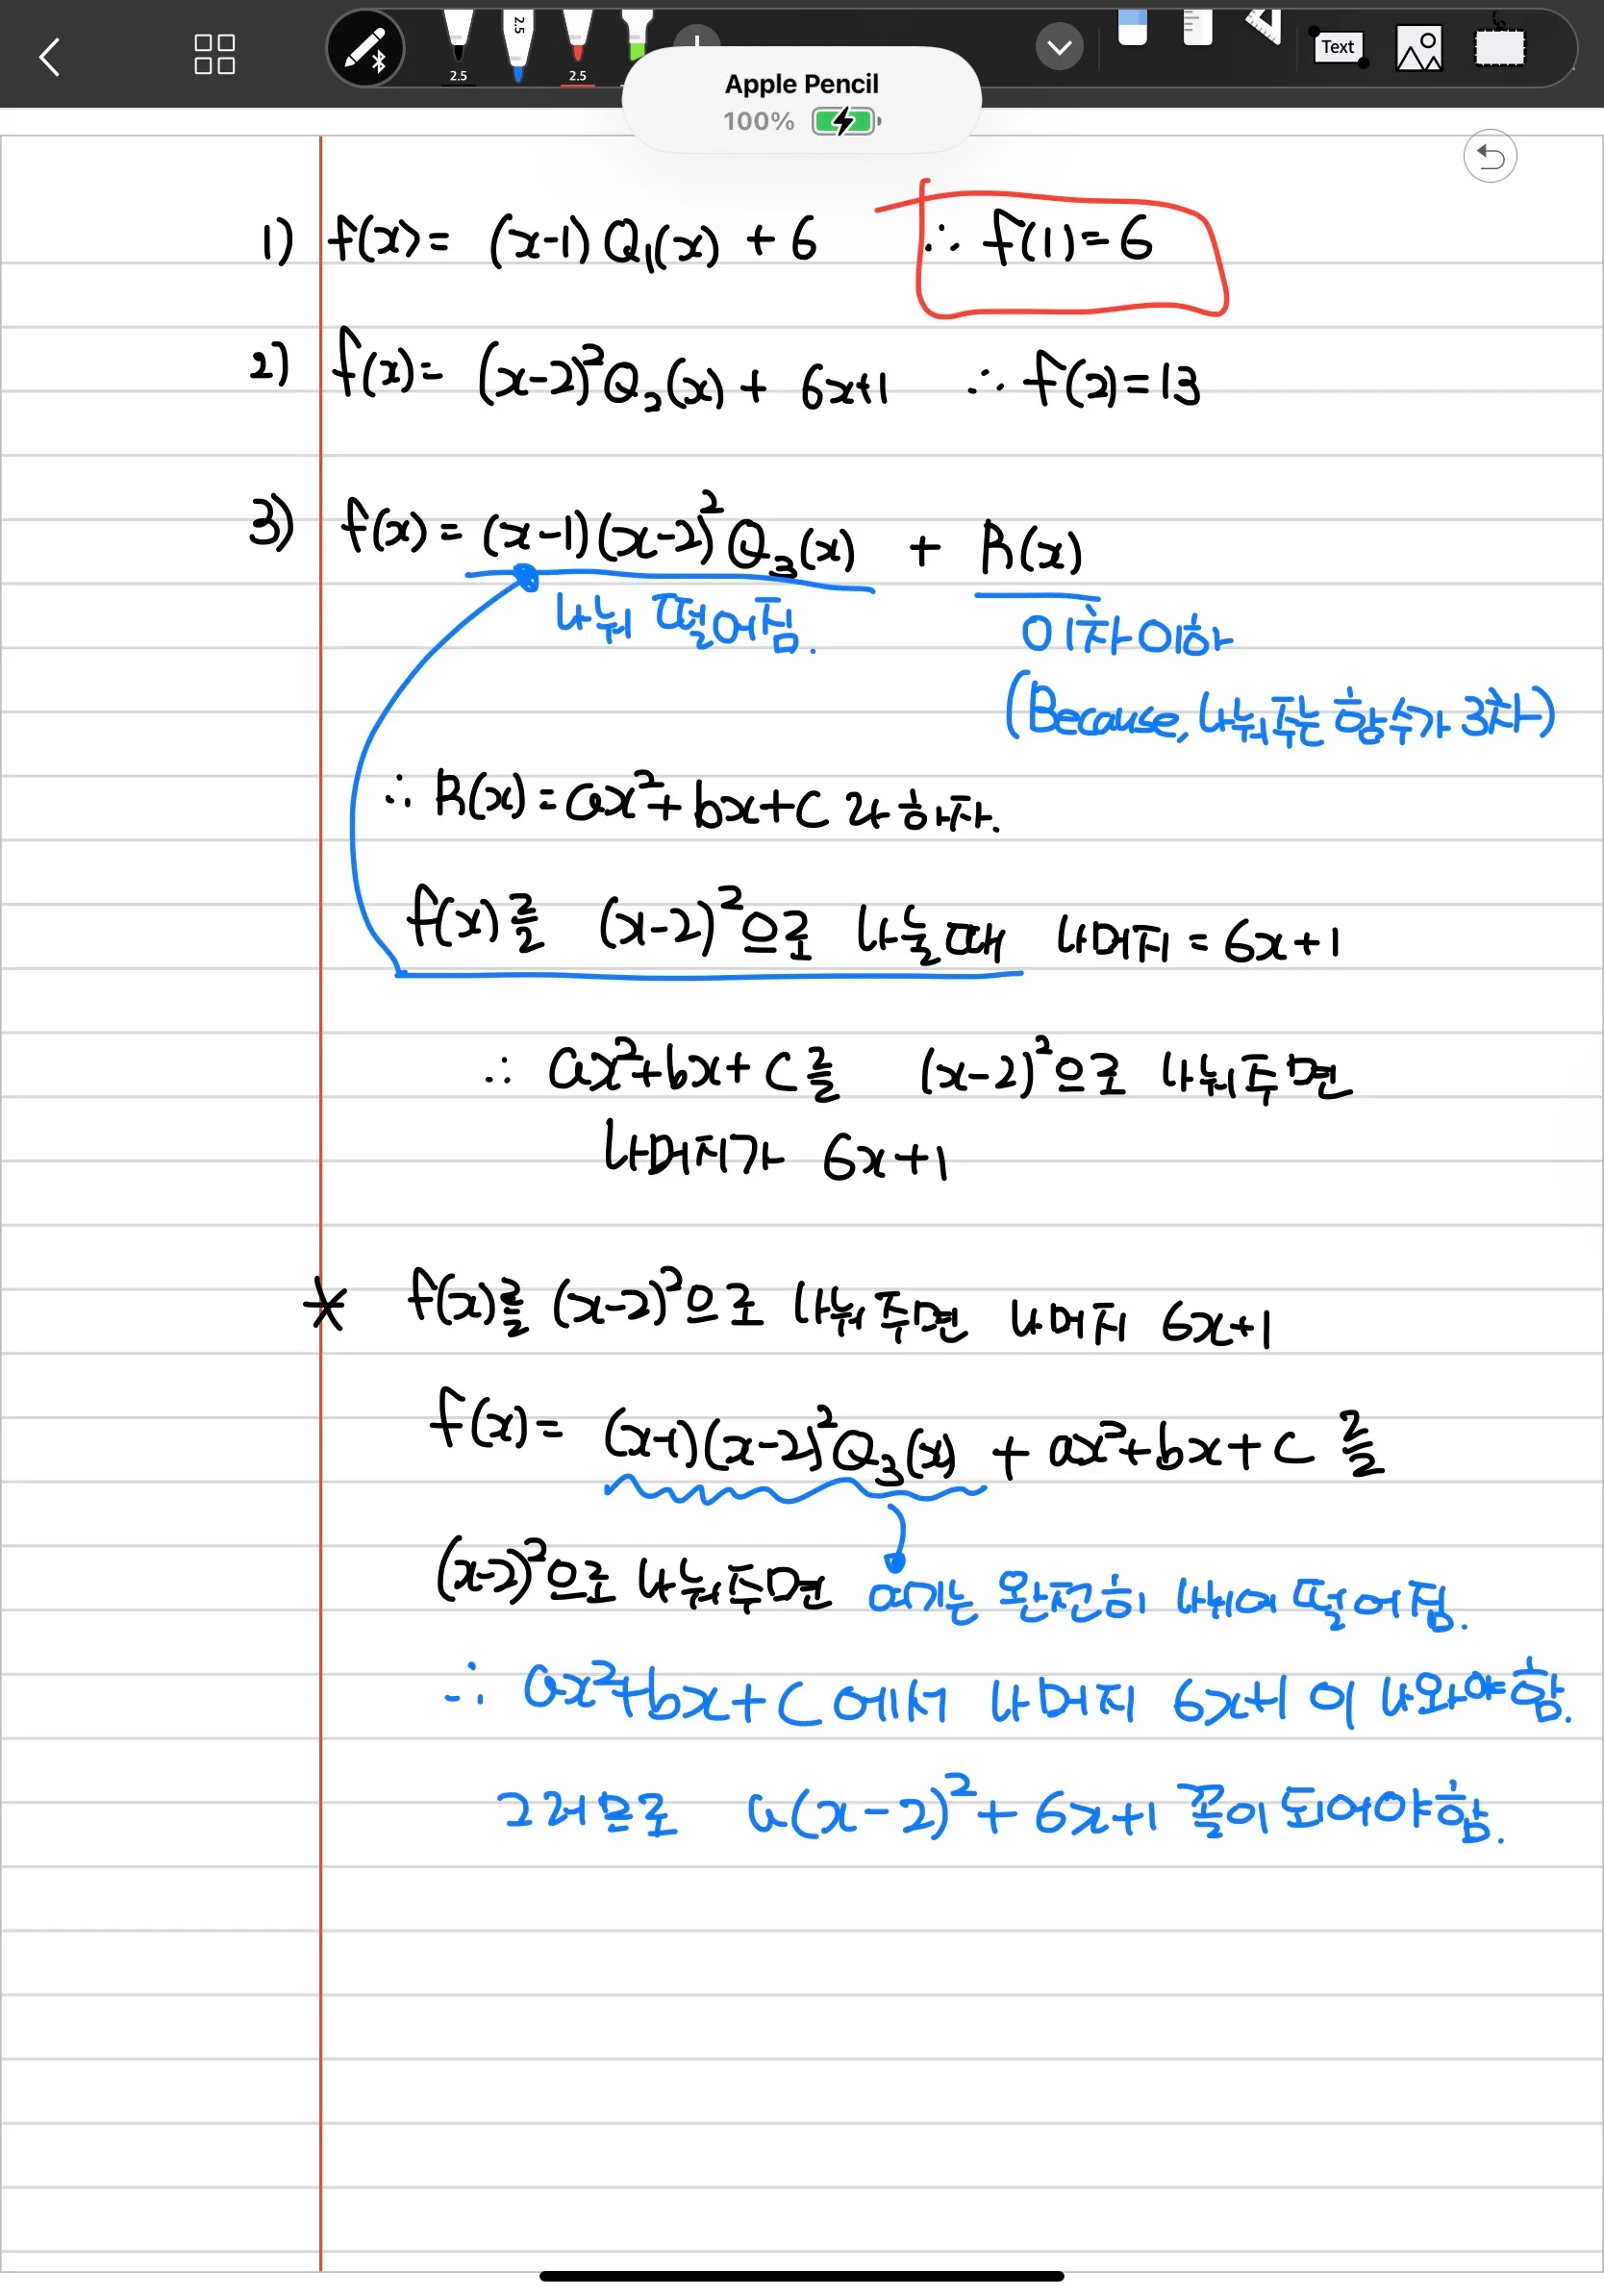 2.5
2.5
2.5
Text
Apple Pencil
100%
1) f(x)= (x-1) Q₁(x) + 6 ∴ f(1)=6
2) f(x)= (x-2)²Q₂(x) + 6x+1 ∴ f(2)=13
3) f(x)=(x-1)(x-2)²Q₃(x) + R(x)
나눠 떨어짐. 이차이하
(Because, 나눠주는 함수가 3차)
∴ R(x)=ax²+bx+c 라 하자.
f(x)를 (x-2)²으로 나눌때 나머지 = 6x+1
∴ ax²+bx+c를 (x-2)²으로 나눠주면
나머지가 6x+1
* f(x)를 (x-2)²으로 나눠주면 나머지 6x+1
f(x)= (x-1)(x-2)²Q₃(x) + ax²+bx+c 를
(x-2)²으로 나눠주면 여기는 완전히 나눠어 떨어짐.
∴ ax²+bx+c에서 나머지 6x+1 이 나와야함.
그러므로 a(x-2)²+6x+1 꼴이 되어야함.